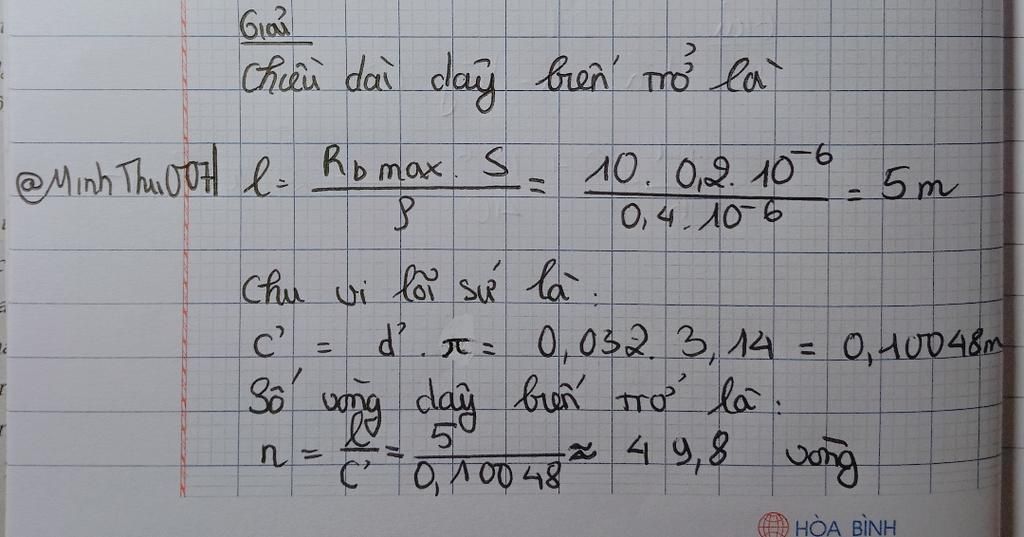 Giải
Chiều dài dây biến trở là
@MinhThu007 l = R_b max . S / ρ = 10. 0,2. 10^-6 / 0,4. 10^-6 = 5 m
Chu vi lõi sứ là :
C' = d'. π = 0,032. 3,14 = 0,10048m
Số vòng dây biến trở là :
n = l / C' = 5 / 0,10048 ≈ 49,8 vòng
HÒA BÌNH